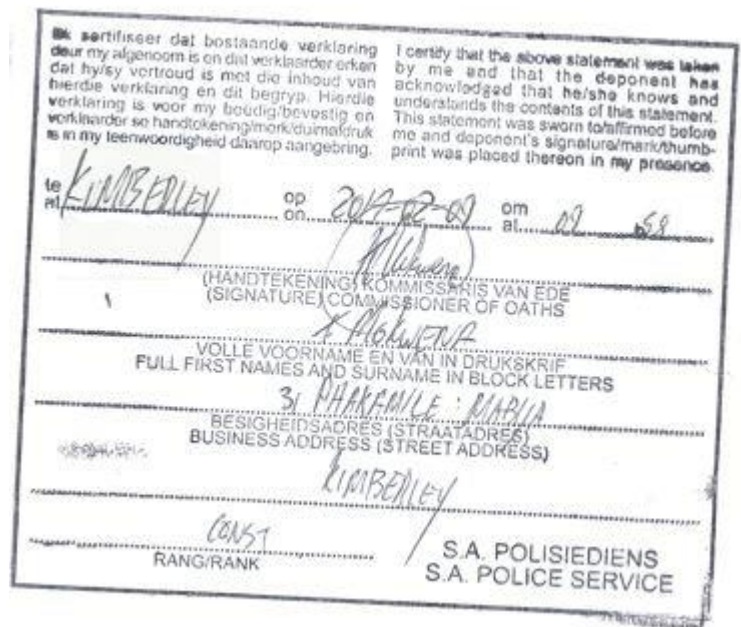 Ek sertifiseer dat bostaande verklaring
deur my afgenoom is en dat verklaarder erken
dat hy/sy vertroud is met die inhoud van
hierdie verklaring en dit begryp. Hierdie
verklaring is voor my beëdig/bevestig en
verklaarder se handtekening/merk/duimafdruk
is in my teenwoordigheid daarop aangebring.
I certify that the above statement was taken
by me and that the deponent has
acknowledged that he/she knows and
understands the contents of this statement.
This statement was sworn to/affirmed before
me and deponent's signature/mark/thumb-
print was placed thereon in my presence.
te KIMBERLEY op 2017-02-09 om 09 58
at on at
(HANDTEKENING) KOMMISSARIS VAN EDE
(SIGNATURE) COMMISSIONER OF OATHS
K MOKWENA
VOLLE VOORNAME EN VAN IN DRUKSKRIF
FULL FIRST NAMES AND SURNAME IN BLOCK LETTERS
31 PHAKAMILE : MABIJA
BESIGHEIDSADRES (STRAATADRES)
BUSINESS ADDRESS (STREET ADDRESS)
KIMBERLEY
CONST
RANG/RANK
S.A. POLISIEDIENS
S.A. POLICE SERVICE